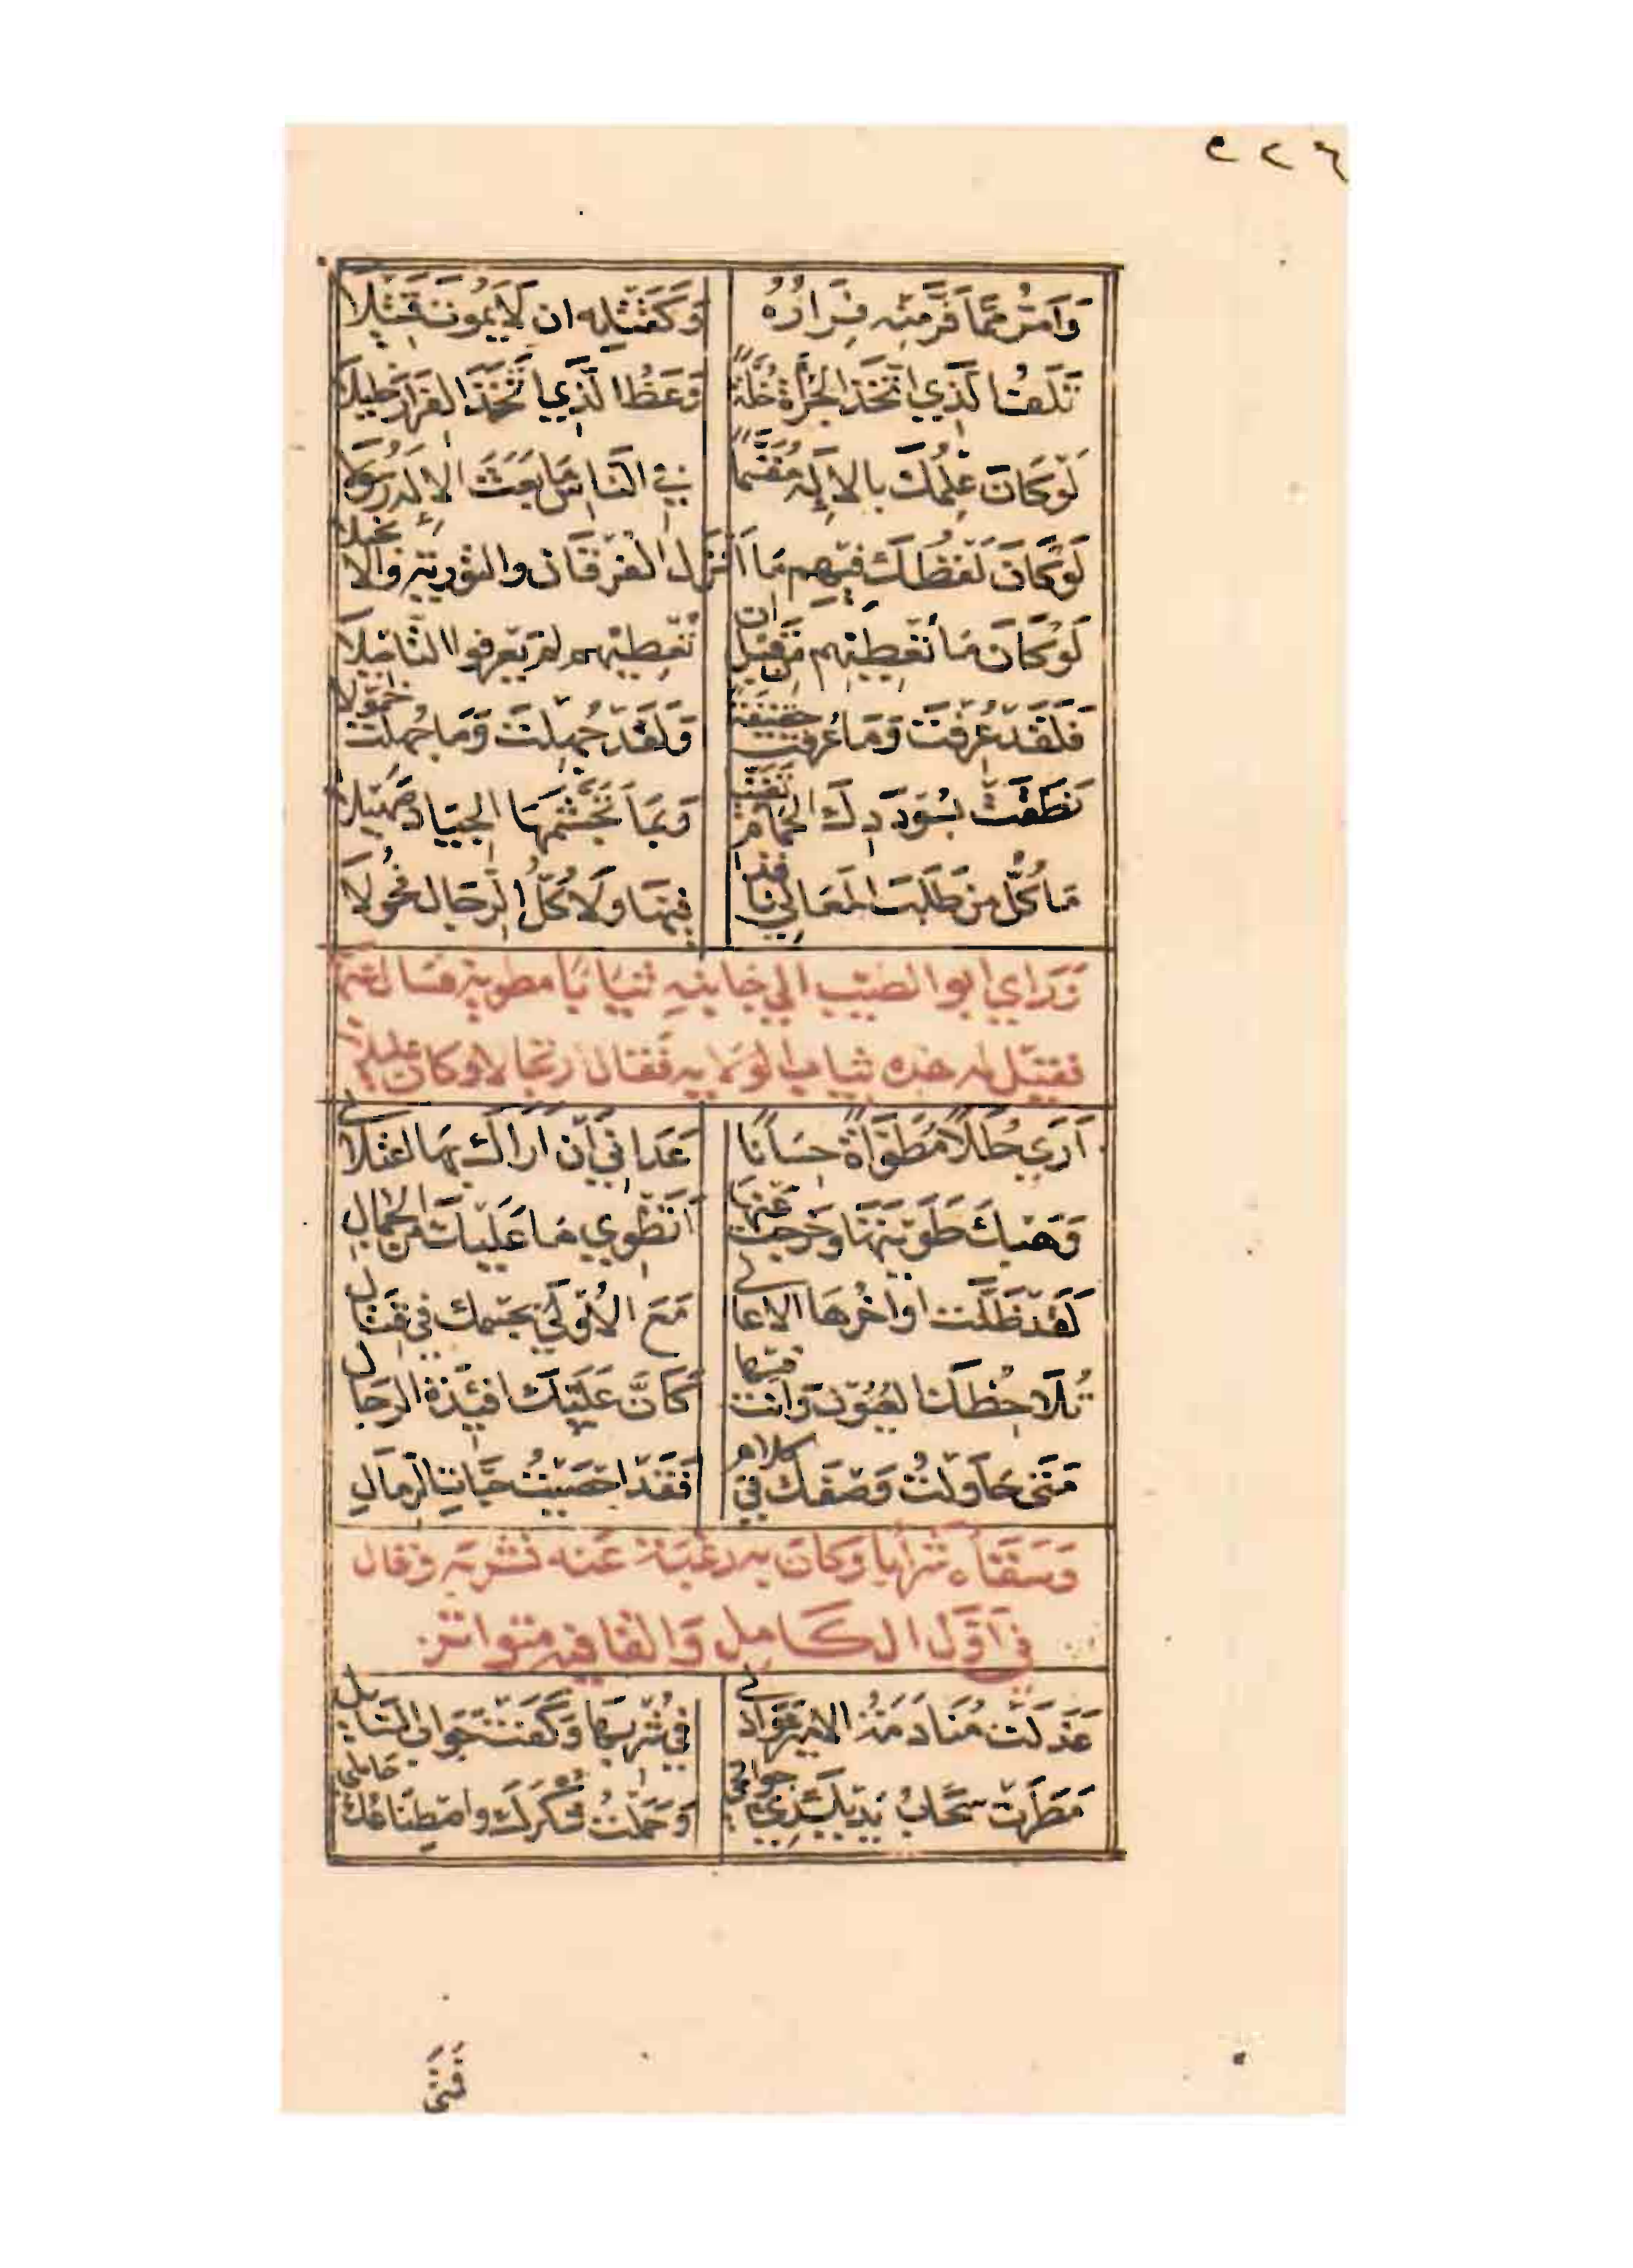 ٢٢٦
وَاَمَرُّ مِمَّا فَرَّ مِنْهُ فِرَارُهُ وَكَقَتْلِهِ ان لَا يَمُوتَ قَتِيْلَا
تَلَفُ الَّذِي اتَّخَذَ الجُرْأَةَ خُلَّةً وَعَظَ الَّذِي اتَّخَذَ الفَرَارَ خَلِيلَا
لَوْ كَانَ عِلْمُكَ بالاِلَهِ مُقَسَّمًا فِي النَّاسِ مَا بَعَثَ الاِلَهُ رَسُولَا
لَوْ كَانَ لَفْظُكَ فِيْهِم مَا اَنْزَلَ الفُرْقَانَ والتَّوْرِيةَ والاِنجيلا
لَوْ كَانَ مَا تُعْطِيْهِم مِنْ قَبْلِ ان تُعْطِيْهِم لَمْ يَعْرِفُوا التَّامِيْلَا
فَلَقَدْ عُرِفْتَ وَمَا عُرِفْتَ حَقِيْقَةً وَلَقَدْ جُهِلْتَ وَمَا جُهِلْتَ خُمُولَا
نَطَقَتْ بِسُؤْدَدِكَ الحَمَامُ تَغَنِّيًا وَبِمَا تُجَشِّمُهَا الجِيَادُ صَهِيْلَا
مَا كُلُّ مَنْ طَلَبَ المَعَالِي نَافِذًا فِيْهَا وَلَا كُلُّ الرِّجَالِ فُحُولَا
وَرَاي ابو الطيّب الي جانبِهِ ثِيَابًا مطويةً فسال عنها
فقيل له هذه ثياب الولاية فقال ارتجالا وكان عليلا
اَرَي حُلَلًا مُطَوَّاةً حِسَانًا عَدَانِي اَنْ اَرَاكَ بِهَا اعْتِلَالِي
وَهَبْكَ طَوَيْتَهَا وَخَرَجْتَ عَنْهَا اَتَطْوِي مَا عَلَيْكَ مِنَ الجَمَالِ
لَقَدْ ظَلَّتْ اواخُرهَا الاعَالِي مَعَ الاُوْلَي بجِسْمِكَ فِي قِتَالِ
تُلَاحِظُكَ العُيُوْنُ وَاَنْتَ فِيْهَا كَاَنَّ عَلَيْكَ افْئِدَةَ الرِجَالِ
مَتَى حَاوَلْتُ وَصْفَكَ فِي كلام فَقَدْ احْصَيْتُ حَبَّاتِ الرِّمَالِ
وَسَقَاهُ شَرَابًا وَكَانَ به رغْبَة عَنه فشربَه وقال
فِي اَوَّلِ الكَامِلِ وَالقافيه متواتر
عَذَلَتْ مُنَادَمَةُ الاميرِ عَوَاذِلِي فِي شُرْبِهَا وَكَفَتْ جَوَابَ السَّايلِ
مَطَرَتْ سَحَابُ يَدَيْكَ رِيَّ جَوَانِحِي وَحَمَلْتُ شُكْرَكَ واصْطِنَاعُكَ حَامِلِي
فَمَتَى